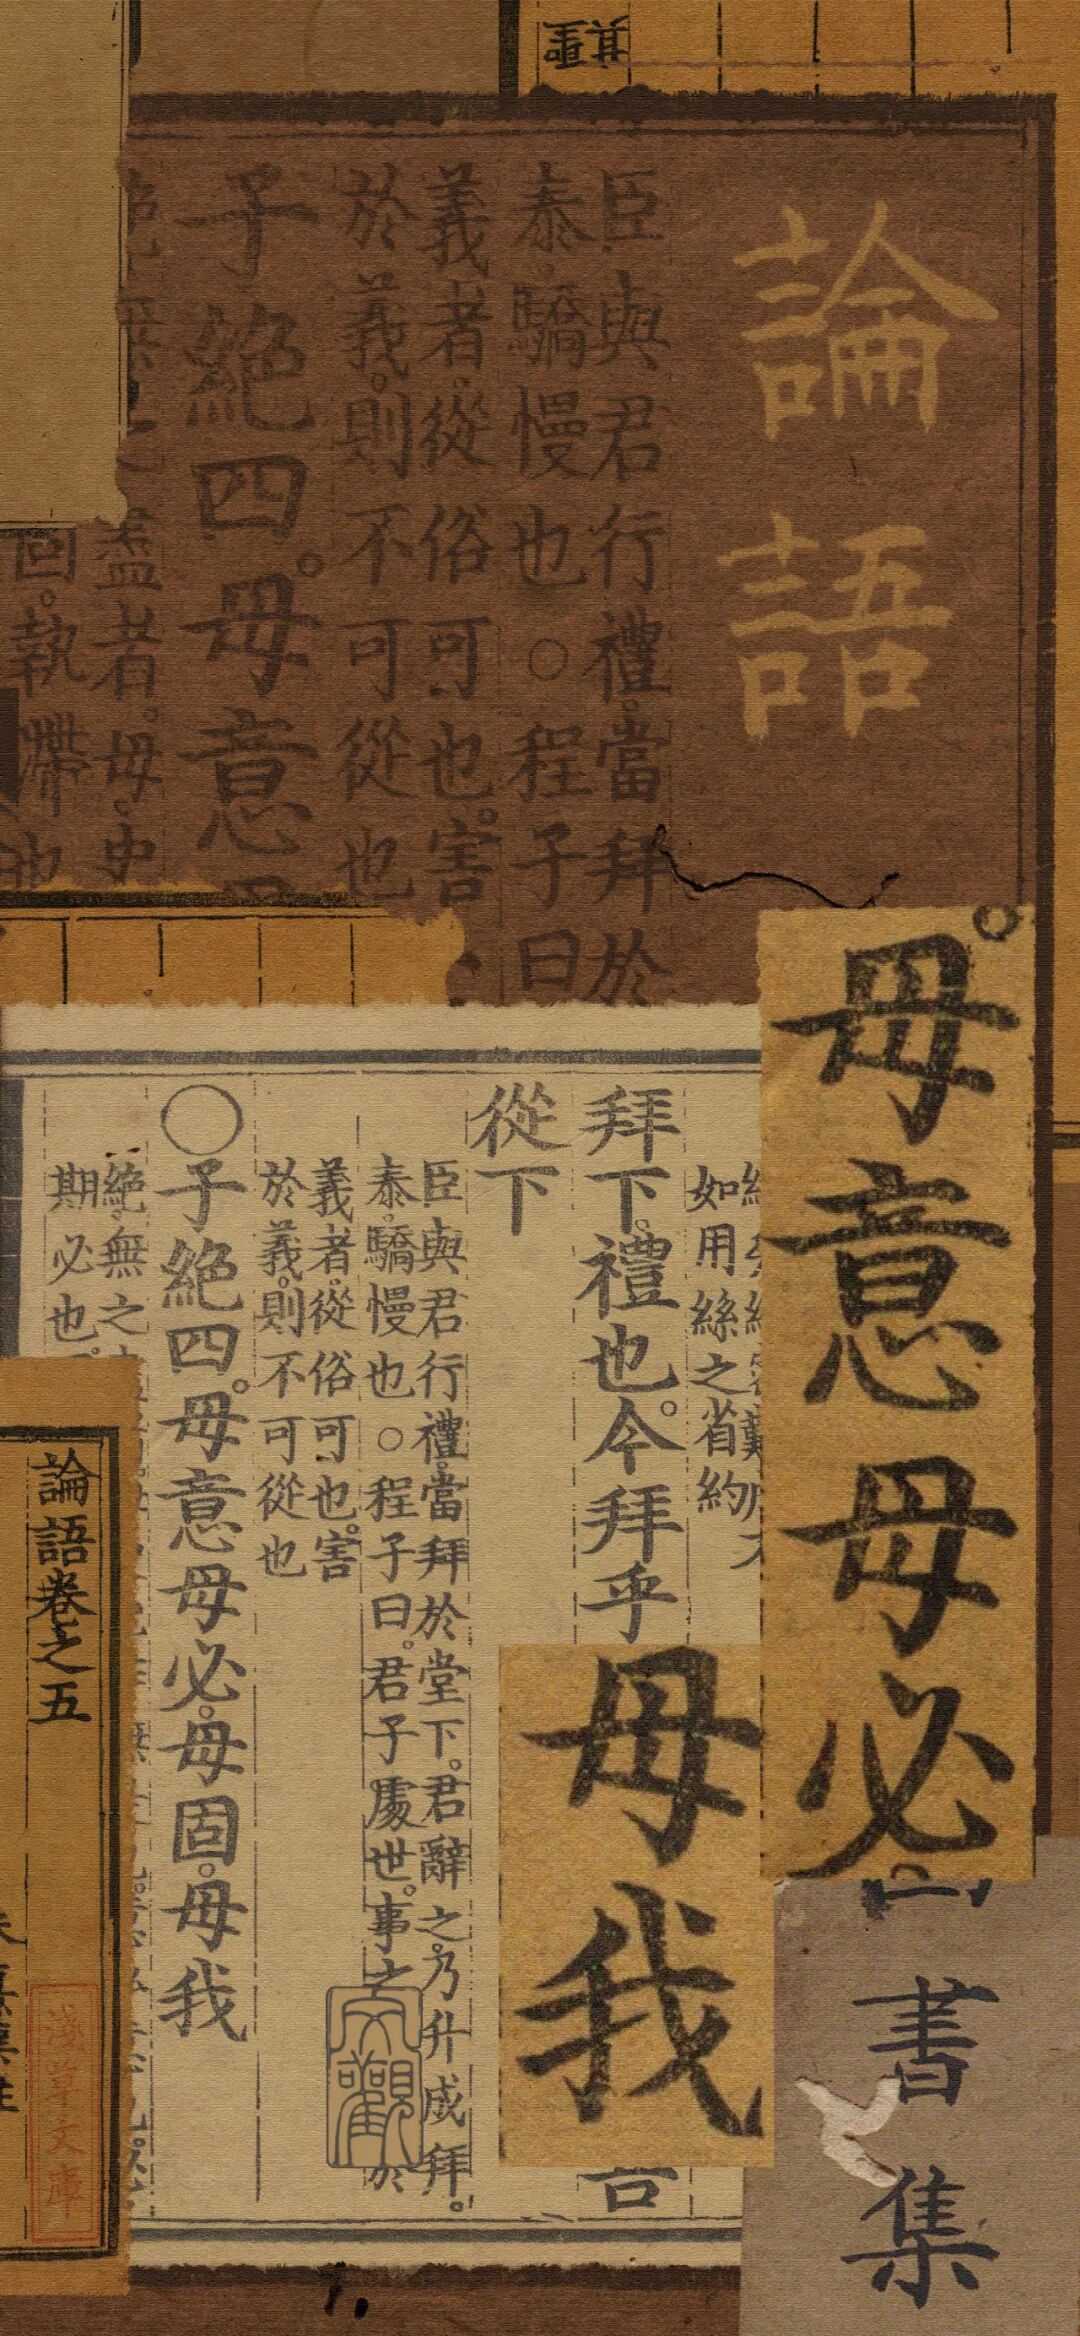 論語
臣與君行禮。當拜於
泰。驕慢也○程子曰
義者。從俗可也。害
於義。則不可從也
子絕四。毋意
盡者。毋。史
固。執滯也
毋意毋必
如用絲之省約
拜下。禮也。今拜乎
從下
臣與君行禮。當拜於堂下。君辭之。乃升成拜。
泰。驕慢也○程子曰。君子處世。事之
義者。從俗可也。害
於義。則不可從也
○子絕四。毋意毋必。毋固。毋我
絕。無之
期必也。
毋我
論語卷之五
朱熹集註
淺草文庫
大觀
書集